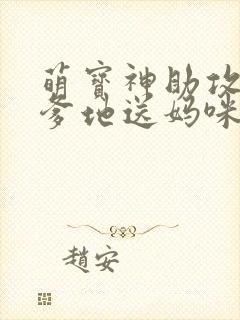 萌寶神助攻
爹地送媽咪
趙安